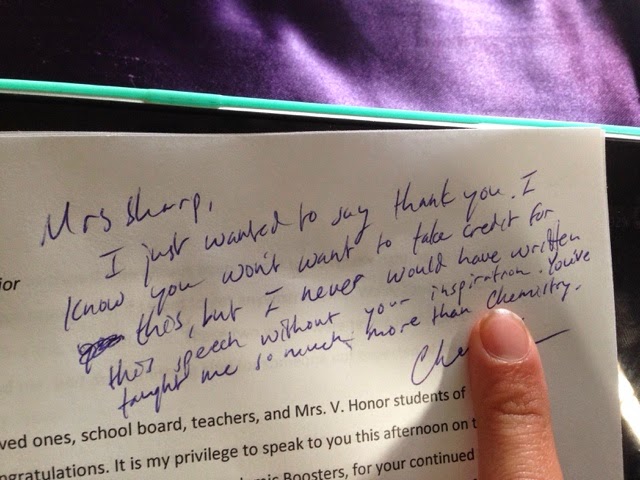 Mrs Sharp,
I just wanted to say thank you. I
know you won't want to take credit for
this, but I never would have written
this speech without your inspiration. You've
taught me so much more than Chemistry.
ior
ved ones, school board, teachers, and Mrs. V. Honor students of
ngratulations. It is my privilege to speak to you this afternoon on
Boosters, for your continued